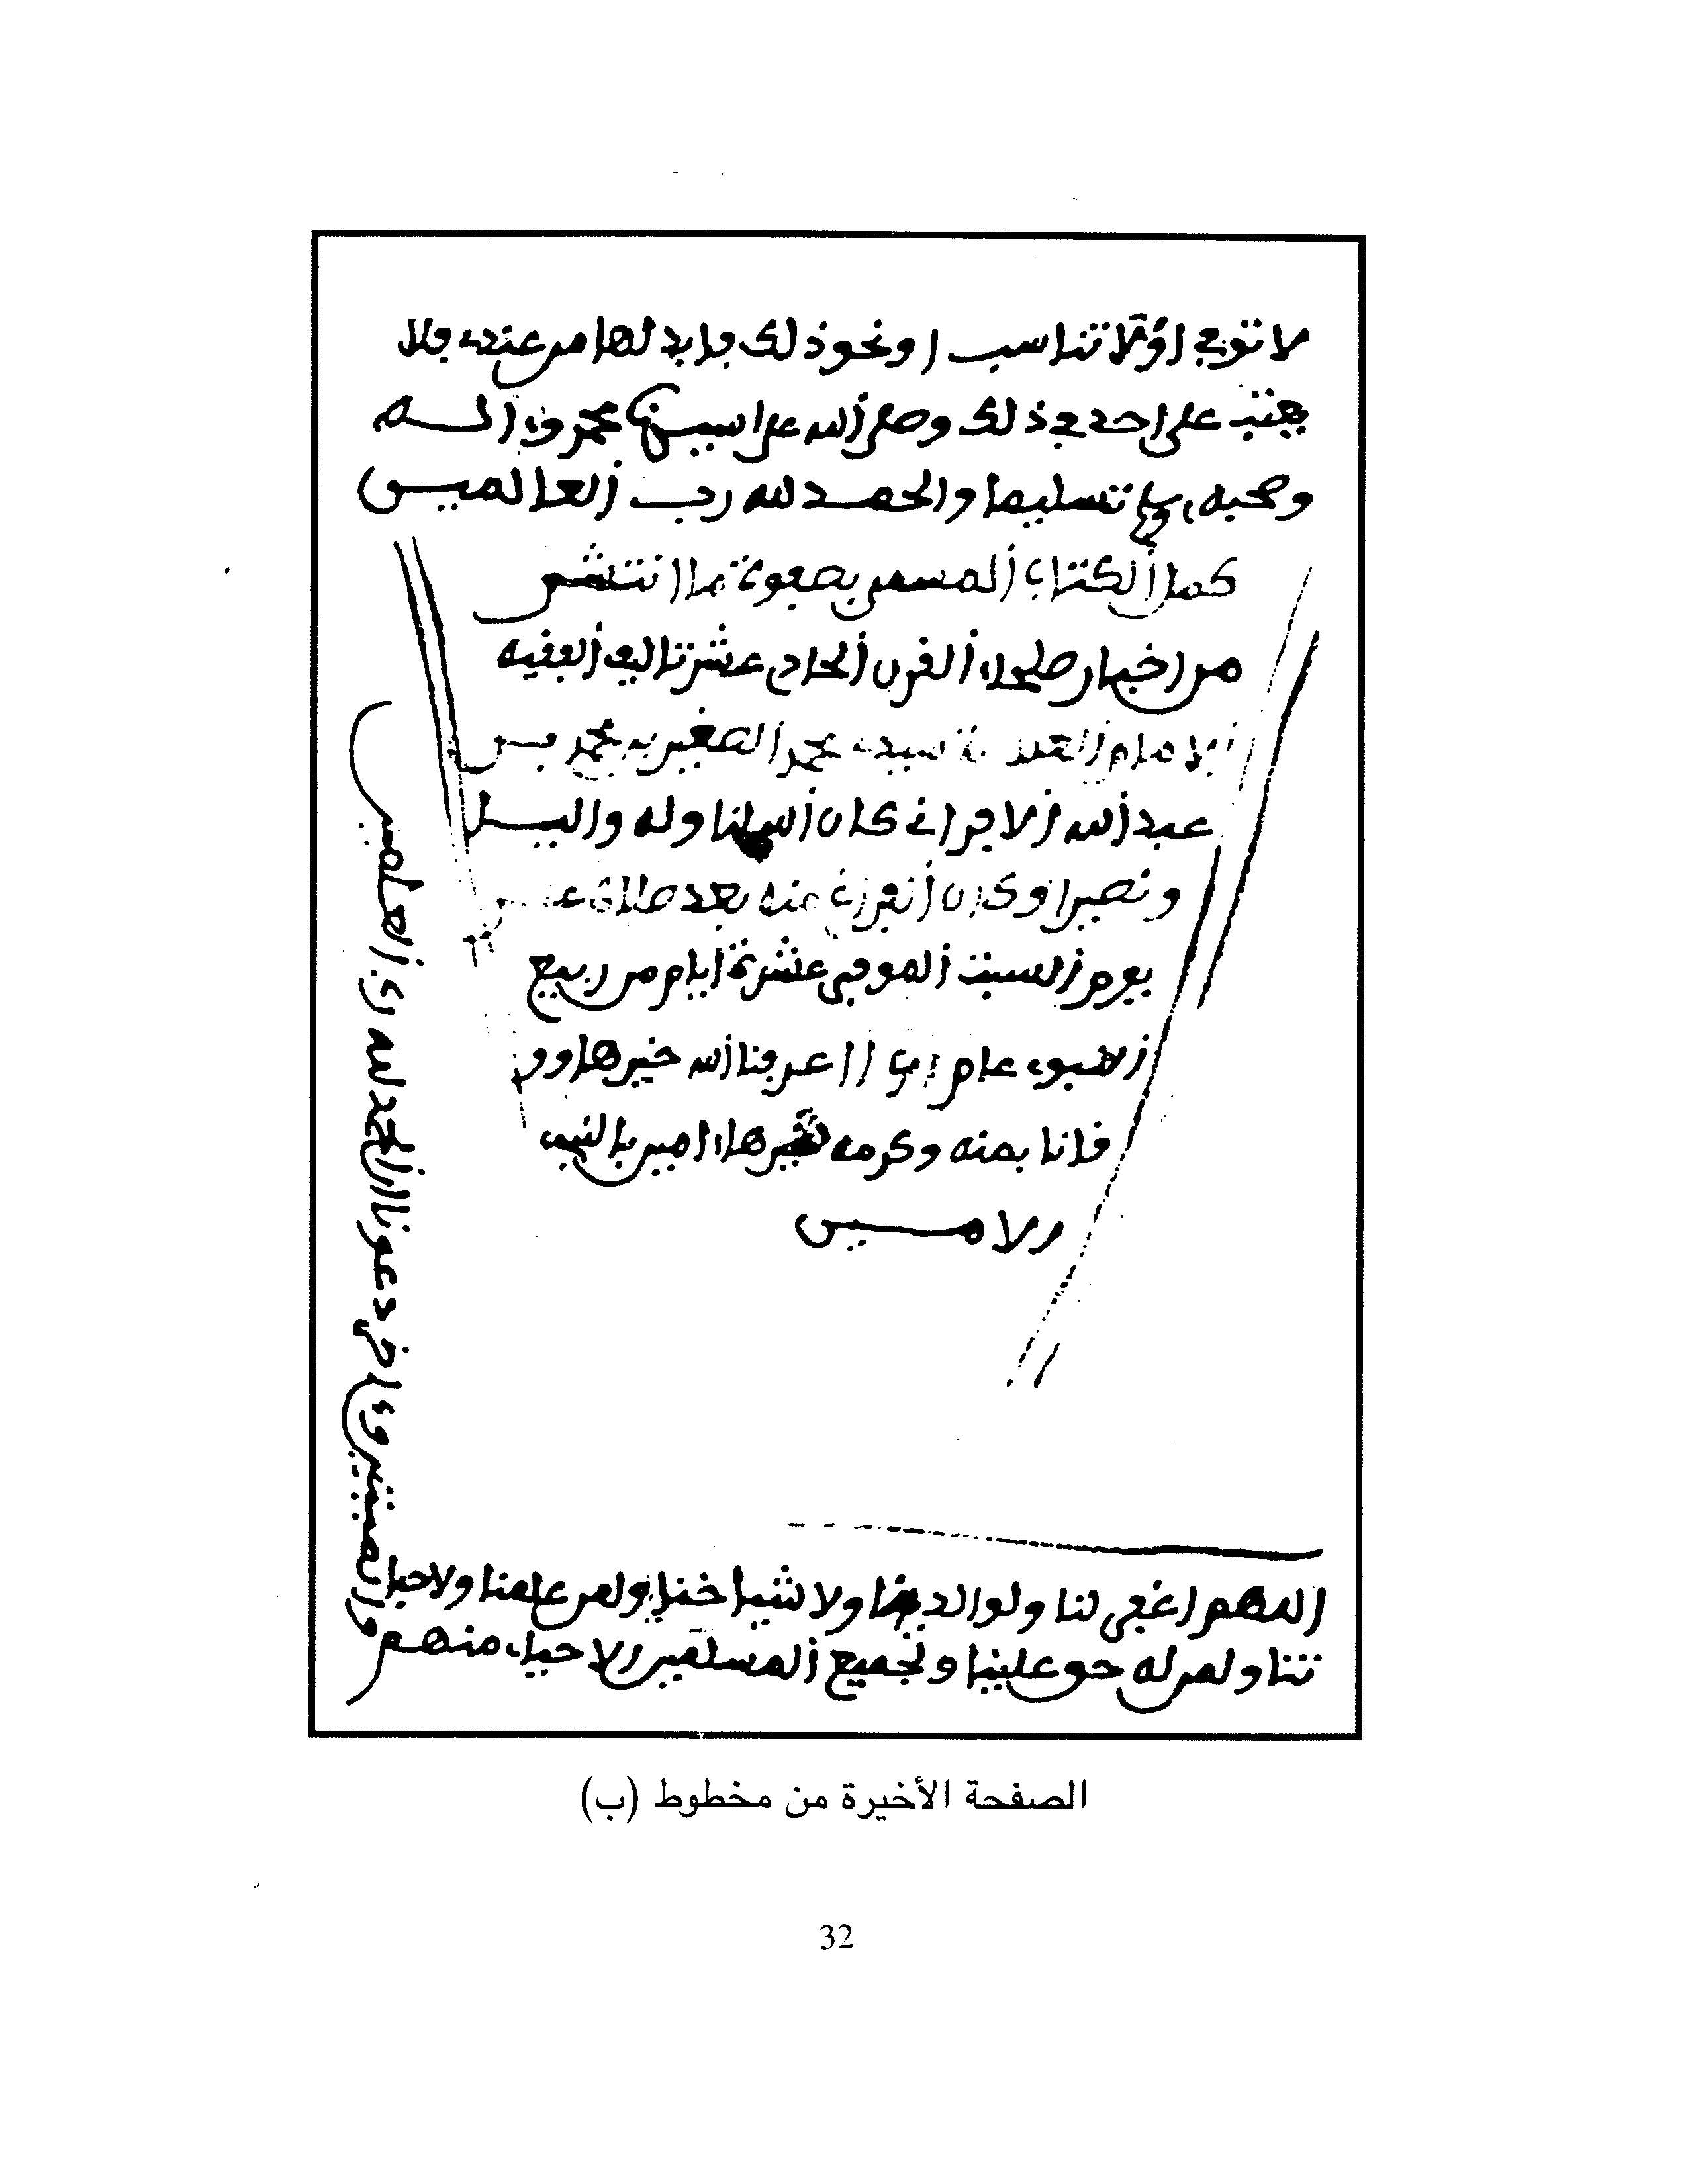 لا توجد او لا تناسب او نحو ذلك فابدلها من عنده فلا
يعتب على احد في ذلك وصلى الله على سيدنا محمد وءاله
وصحبه وسلم تسليما والحمد لله رب العالمين
كمل الكتاب المسمى بصفوة ما انتشر
من اخبار صلحاء القرن الحادي عشر تاليف الفقيه
الامام سيدي محمد الصغير بن محمد بن
عبد الله الافراني كان الله لنا وله واليا
ونصيرا وكان الفراغ منه بعد صلاة
يوم السبت الموفي عشرة ايام من ربيع
النبوي عام عرفنا الله خيرها وو
قانا بمنه وكرمه ءامين بالنبي
الامين
اللهم اغفر لنا ولوالدينا ولاشياخنا ولمن علمنا ولاحبا
ئنا ولمن له حق علينا ولجميع المسلمين الاحياء منهم
والميتين وءاخر دعونا ان الحمد لله رب العلمين
الصفحة الأخيرة من مخطوط (ب)
32